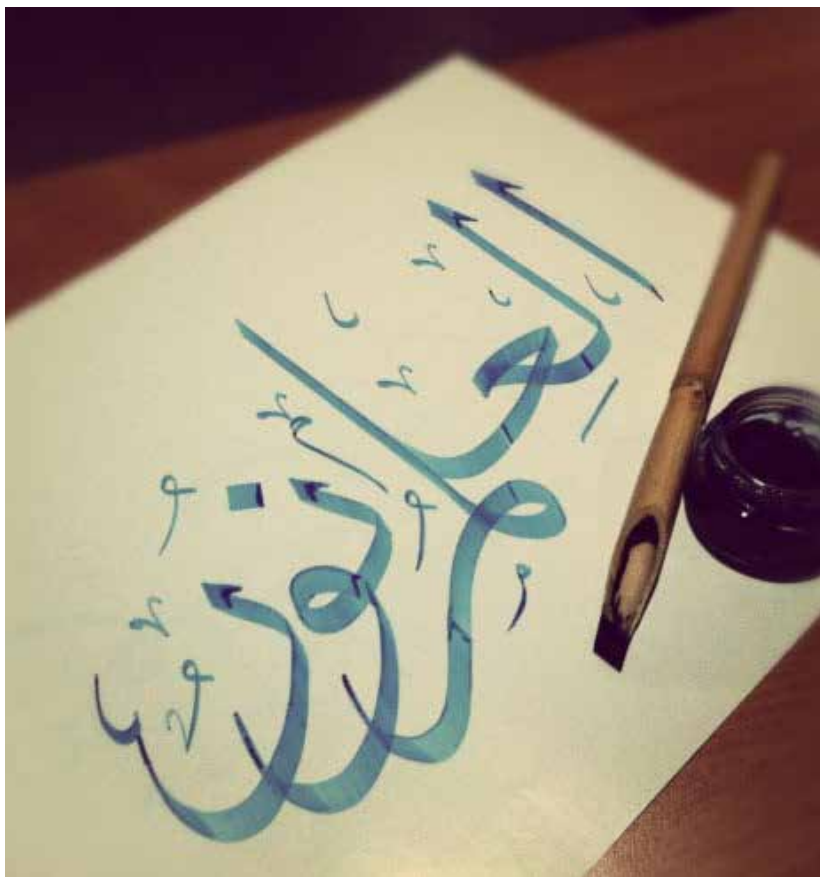 العِلمُ نورٌ